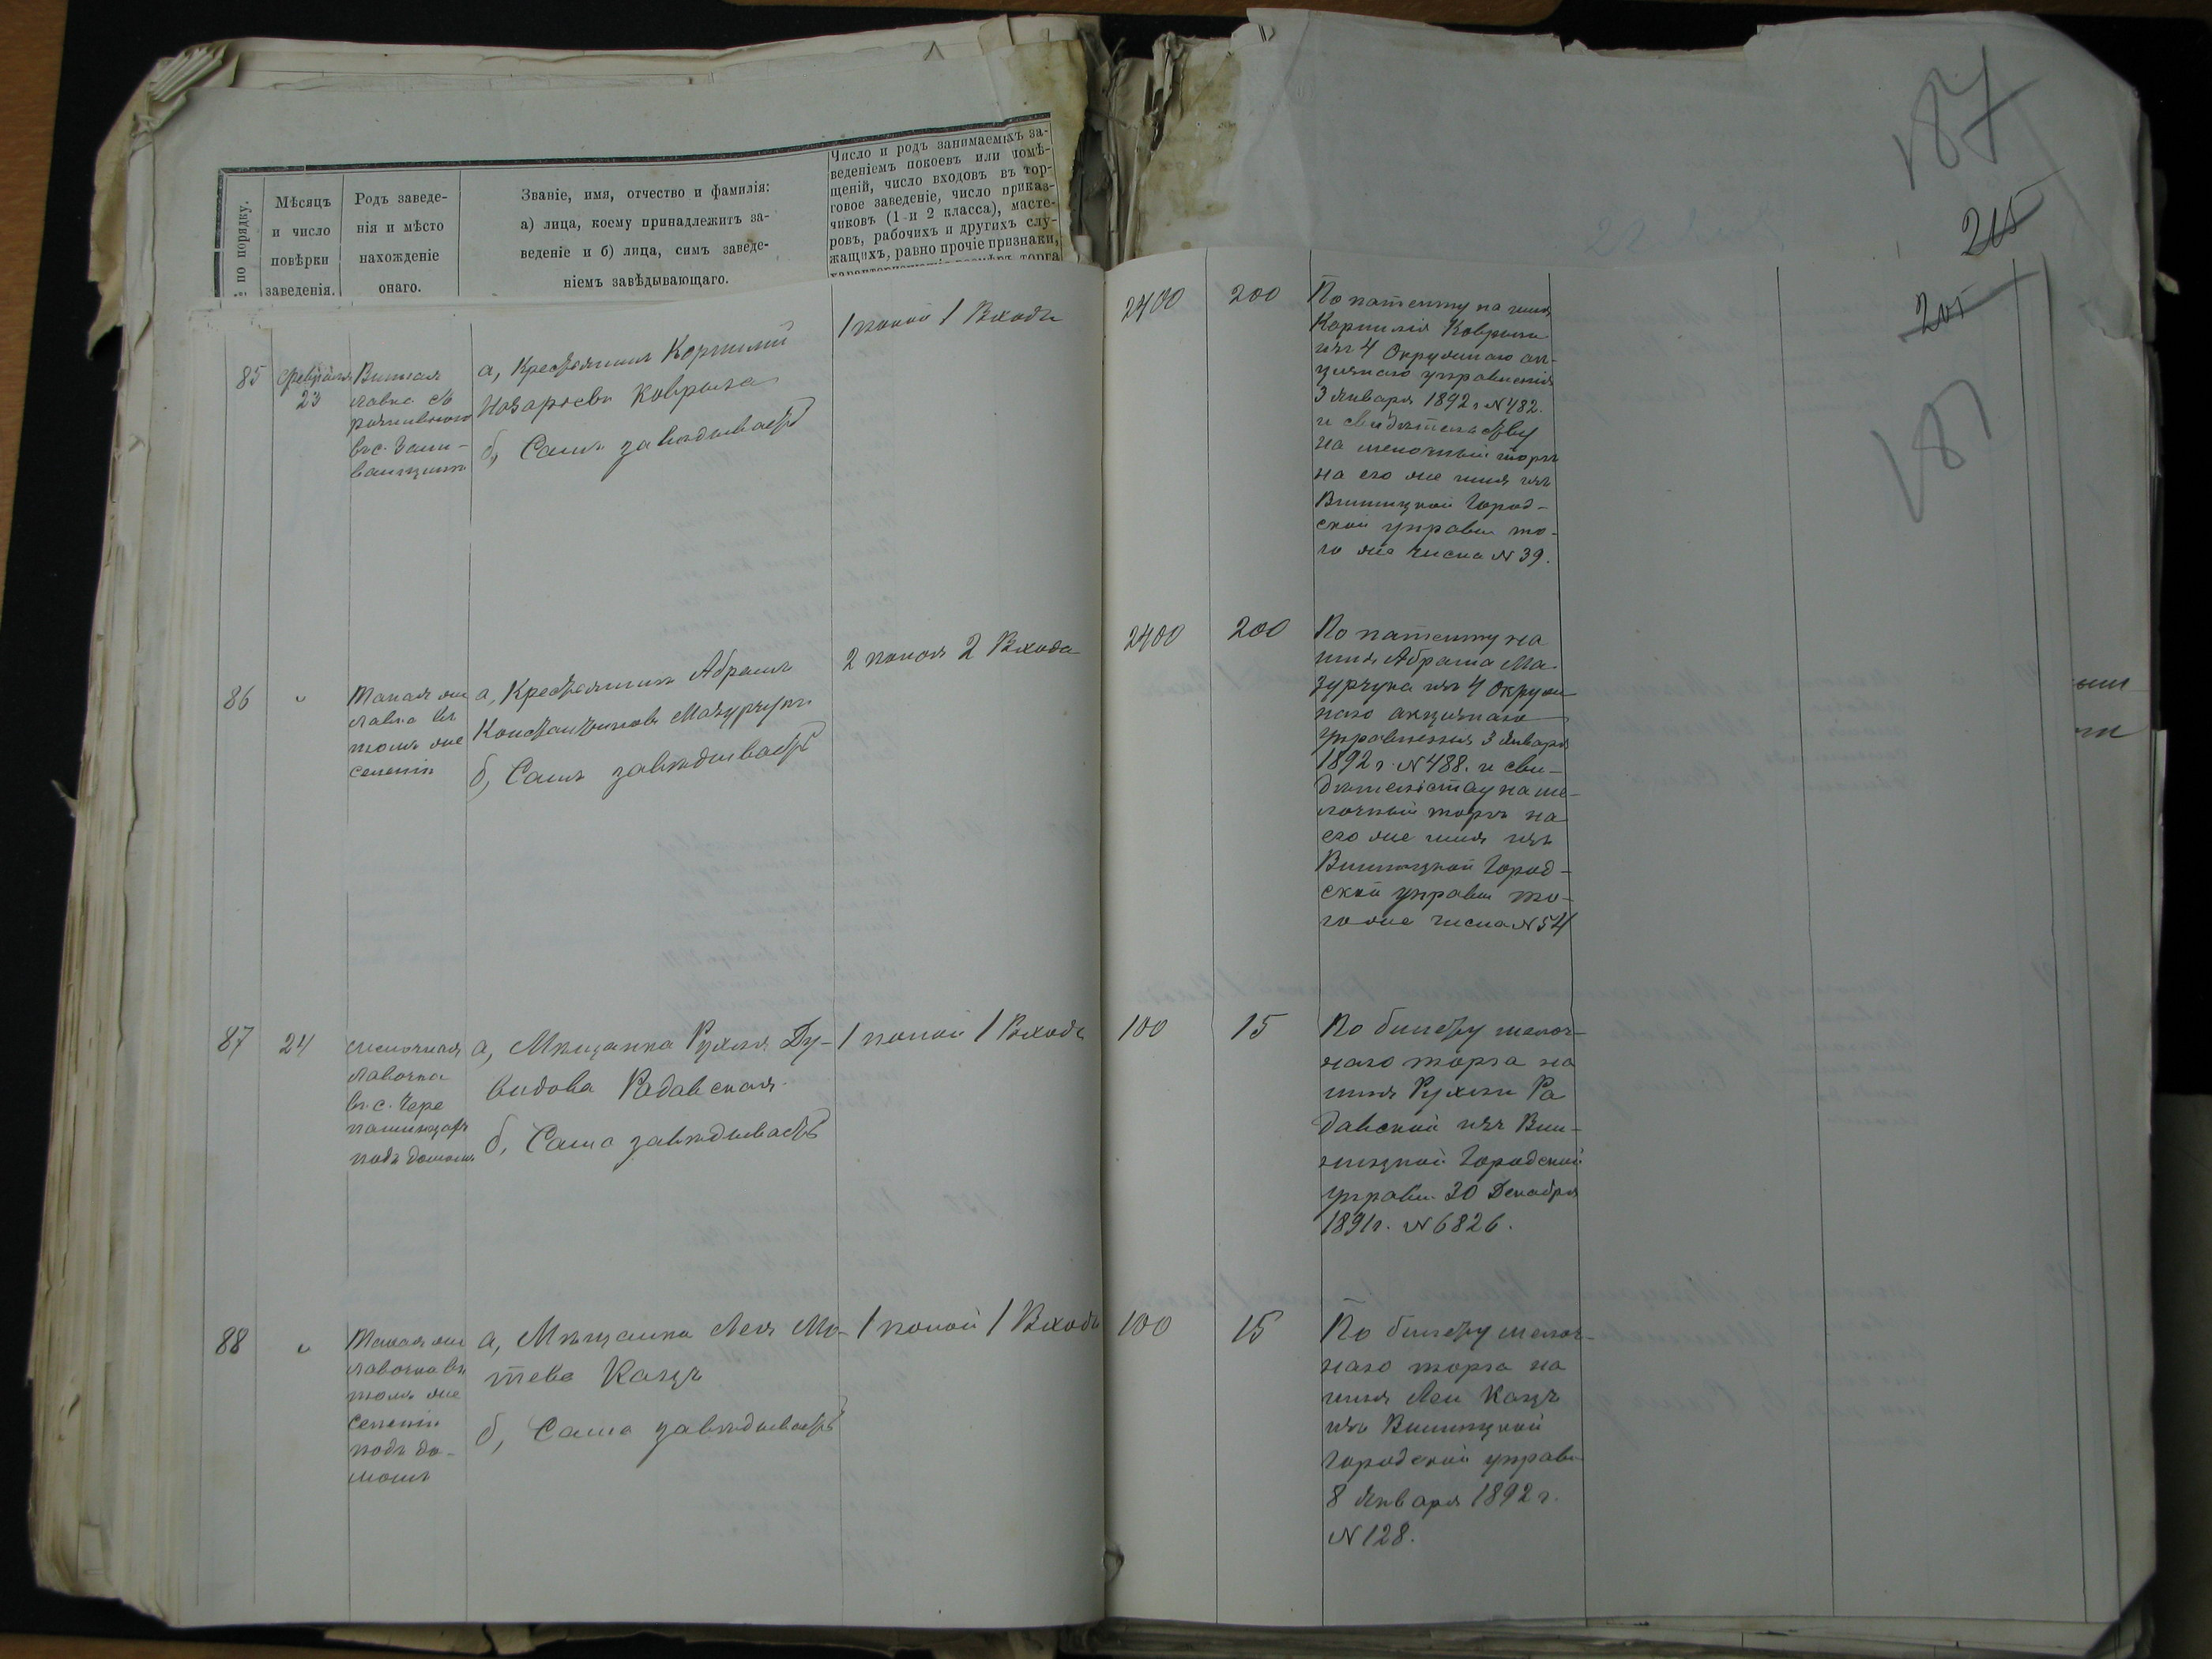 № по порядку.
Мѣсяцъ
и число
повѣрки
заведенія.
Родъ заведе-
нія и мѣсто
нахожденіе
онаго.
Званіе, имя, отчество и фамилія:
а) лица, коему принадлежитъ за-
ведение и б) лица, симъ заведе-
ніемъ завѣдывающаго.
Число и родъ занимаемыхъ за-
веденіемъ покоевъ или помѣ-
щеній, число входовъ въ тор-
говое заведеніе, число приказ-
чиковъ (1 и 2 класса), масте-
ровъ, рабочихъ и другихъ слу-
жащихъ, равно прочіе признаки,
187
215
205
187
85
Февраля
23
Винная
лавка съ
въ с.
а, Крестьянинъ Корнилій
Назарьевъ Коврыга
б, Самъ завѣдываетъ
1 покой 1 Входъ
2400
200
По патенту на имя
Корнилія Коврыги
изъ 4 Окружнаго ак-
цизнаго управленія
3 Января 1892 г N 482.
и свидѣтельству
на мелочный торгъ
на его же имя изъ
Винницкой Город-
ской управы то-
го же числа N 39.
86
"
Такая же
лавка въ
томъ же
селеніи
а, Крестьянинъ Абрамъ
Константиновъ Мазурчукъ
б, Самъ завѣдываетъ
2 покоя 2 Входа
2400
200
По патенту на
имя Абрама Ма-
зурчука изъ 4 Окруж-
наго акцизнаго
управленія 3 Января
1892 г. N 488. и сви-
дѣтельству на ме-
лочный торгъ на
его же имя изъ
Винницкой Город-
ской управы то-
го же числа N 54
87
24
Мелочная
лавочка
въ с. Чере
пашинцахъ
подъ домомъ
а, Мѣщанка Рухля Ду-
видова Радавская
б, Сама завѣдываетъ
1 покой 1 Входъ
100
15
По билету мелоч-
наго торга на
имя Рухли Ра
давской изъ Вин-
ницкой Городской
управы 30 Декабря
1891 г. N 6826.
88
"
Такая же
лавочка въ
томъ же
селеніи
подъ до-
момъ
а, Мѣщанка Лея Мо-
тева Кацъ
б, Сама завѣдываетъ
1 покой 1 Входъ
100
15
По билету мелоч-
наго торга на
имя Леи Кацъ
изъ Винницкой
Городской управы
8 Января 1892 г.
N 128.